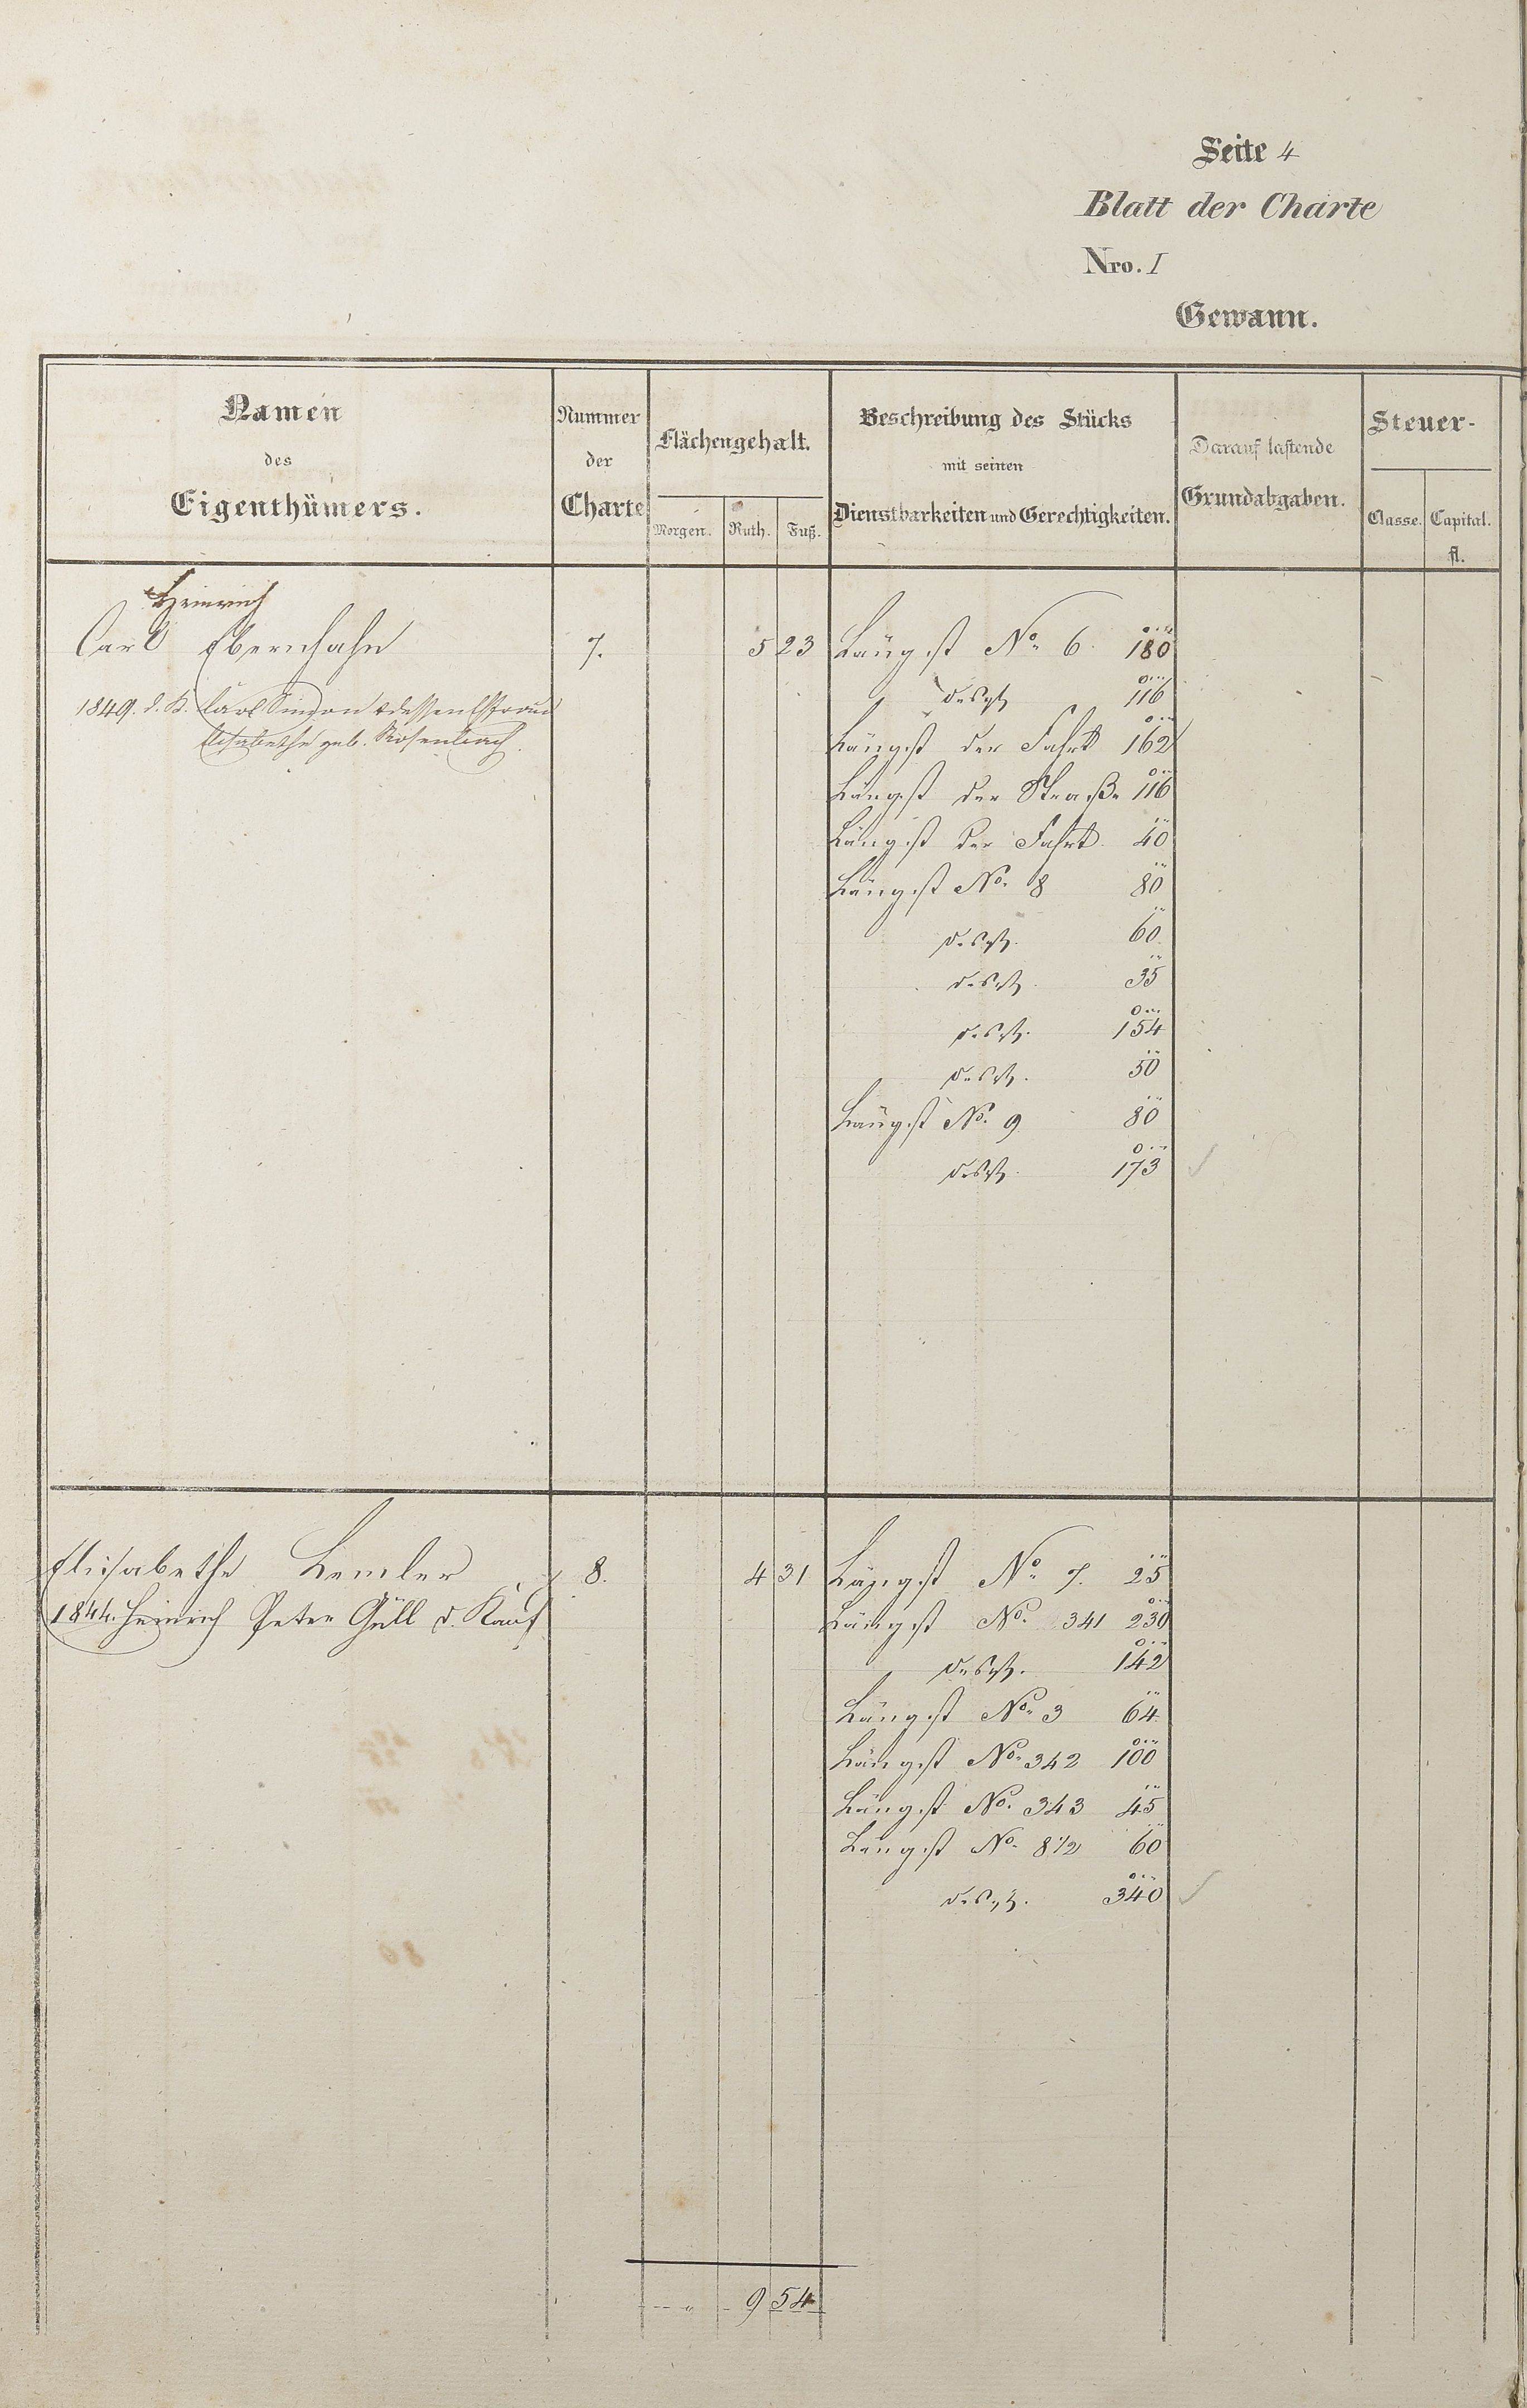 Seite 4
Blatt der Charte
Nro. I
Gewann.
Namen des Eigenthümers.
Nummer der Charte
Flächengehalt.
Morgen. Ruth. Fuß.
Beschreibung des Stücks mit seinen Dienstbarkeiten und Gerechtigkeiten.
Darauf lastende Grundabgaben.
Steuer-
Classe. Capital. fl.
Heinrich
Carl Ebernhahn 7. 5 23 Längst No. 6. 180
1849. d. K. Carl Simon & dessen Ehefrau
Elisabethe geb. Rosenbach.
desgl. 116
Längst der Fahrt 162
Längst der Straße 116
Längst der Fahrt 40
Längst No. 8 80
desgl. 60
desgl. 35
desgl. 154
desgl. 50
Längst No. 9 80
desgl. 173
Elisabethe Lemler 8. 4 31 Längst No. 7. 25
1844. Heinrich Peter Güll d. Kauf
Längst No. 341 230
desgl. 142
Längst No. 3 64
Längst No. 342 100
Längst No. 343 45
Längst No. 8 1/2 60
desgl. 340
9 54